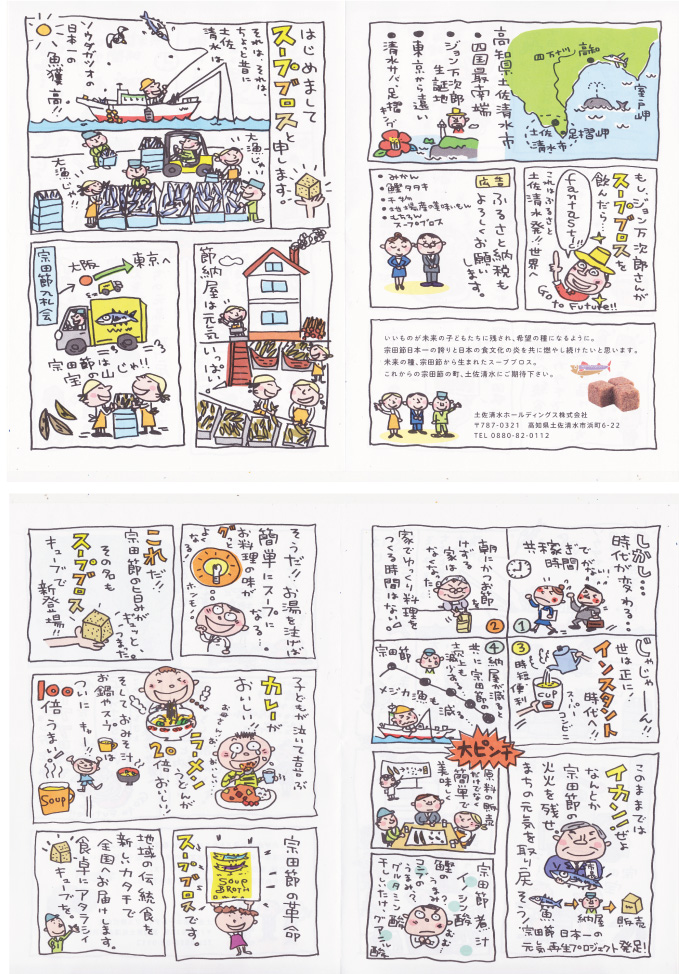 はじめまして
スープブロスと申します。
それは、それは、
ちょっと昔に
土佐
清水は
ソウダガツオの
日本一の
魚獲高!!
大漁じゃ!!
大漁じゃ!!
節納屋は元気いっぱい。
宗田節入札会
大阪
東京へ
宗田節は
宝の山じゃ!!
高知県土佐清水市
●四国最南端
●ジョン万次郎
生誕地
●東京から遠い
●清水サバ、足摺キング
四万十川
高知
室戸岬
足摺岬
土佐
清水市
もし、ジョン万次郎さんが
スープブロスを
飲んだら…
fantastic!!
これはふるさと
土佐清水発!!世界へ
Go to Future!!
広告
ふるさと納税も
よろしくお願い
します。
●みかん
●鰹タタキ
●干物
●地場産の美味いもん
●もちろん
スープブロス
いいものが未来の子どもたちに残され、希望の種になるように。
宗田節日本一の誇りと日本の食文化の炎を共に燃やし続けたいと思います。
未来の種、宗田節から生まれたスープブロス。
これからの宗田節の町、土佐清水にご期待下さい。
土佐清水ホールディングス株式会社
〒787-0321　高知県土佐清水市浜町6-22
TEL 0880-82-0112
しかし…
時代が変わる…
共稼ぎで
時間がない
①
朝にかつお節
をけずる
家は
なくなった…
家でゆっくり料理を
つくる時間はない。
②
じゃじゃーん!!
世は正に!
インスタント
時代へ!!
③
時短便利
CUP
スーパー
コンビニ
④
納屋が減ると
共に宗田節の
売上も
減少す。
宗田節
メジカ漁も減る
大ピンチ
このままでは
イカン!ぜよ
なんとか
宗田節の
火を残せ。
まちの元気を取り戻そう!
魚
納屋
販売
宗田節日本一の
元気再生プロジェクト発足!
原料の販売
だけでなく
簡単で
美味しく
宗田節煮汁
イノシン酸
鰹のうまみ?
コンブの
うまみ?
グルタミン酸
干ししいたけ、グアニル酸
そうだ!!お湯を注げば
簡単にスープに
なる…
お料理の味が
グっと
よくなる!
ホンモノ!
これだ!!
宗田節の旨みが
ギュッと、
つまった。
その名も
スープブロス
キューブで
新登場!!
子どもが泣いて喜ぶ
カレーが
おいしい!!
ラーメン
うどんが
20倍おいしい!
そしておみそ汁
お鍋やスープは
ついに
キャー!!
100
倍うまい!
Soup
宗田節の革命
スープブロスです。
SOUP
BROTH
地域の伝統食を
新しいカタチで
全国へお届けします。
食卓にアタラシイ
キューブを。